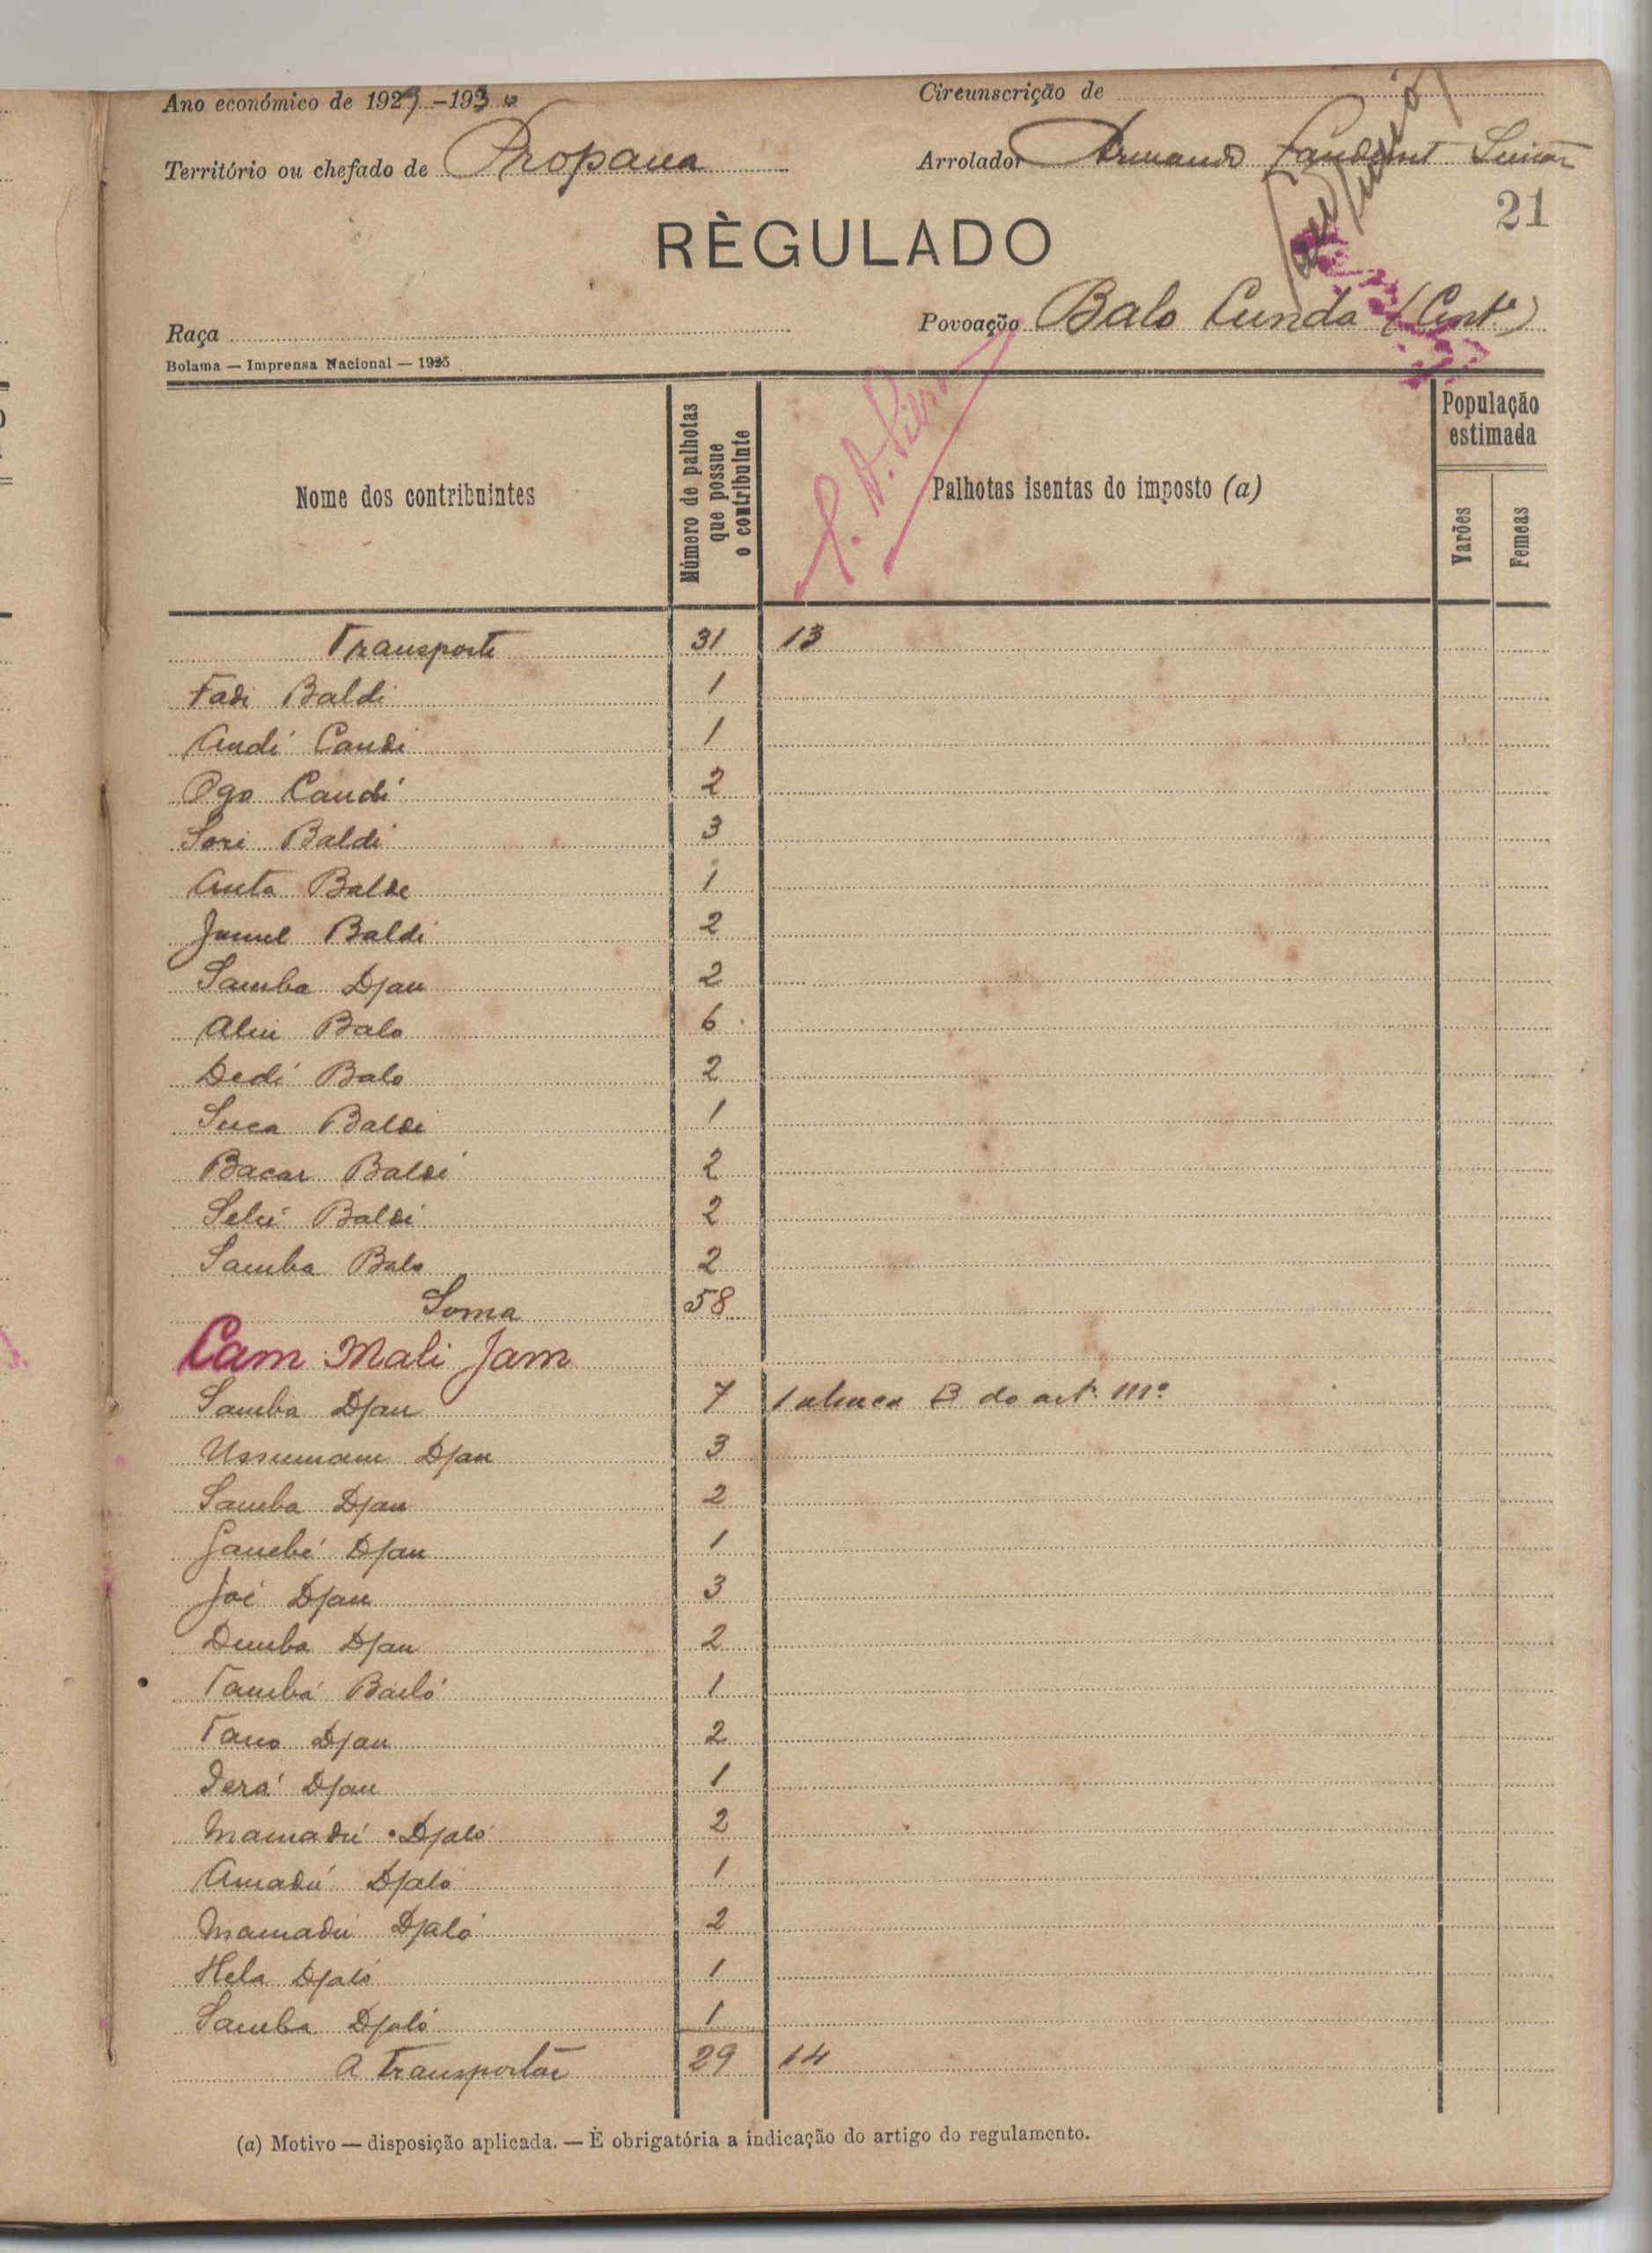 Ano económico de 1929-1930
Circunscrição de
Território ou chefado de Propana
Arrolador Armando Junior
21
RÈGULADO
Raça
Povoação Balo Cunda (Contª)
Bolama — Imprensa Nacional — 1925
Nome dos contribuintes
Número de palhotas que possue o contribuinte
Palhotas isentas do imposto (a)
População estimada
Varões
Femeas
Transporte 31 13
Fadi Baldi 1
Candi 1
Ogo Candi 2
Sori Baldi 3
Anta Balde 1
Baldi 2
Samba Djau 2
Aliu Balo 6
Dedi Balo 2
Suca Baldi 1
Bacar Baldé 2
Baldi 2
Samba Balo 2
Soma 58
Cam Mali Jam
Samba Djau 7 1 alinea B do artº 111º
Ussumane Djau 3
Samba Djau 2
Djau 1
Djau 3
Demba Djau 2
Tambá Bailó 1
Tano Djau 2
Djau 1
Mamadú Djaló 2
Amadú Djaló 1
Mamadú Djaló 2
Hela Djaló 1
Samba Djaló 1
A Transportar 29 14
(a) Motivo — disposição aplicada. — È obrigatória a indicação do artigo do regulamento.